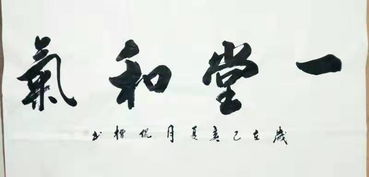 一堂和氣
歲在己亥夏月倪標书